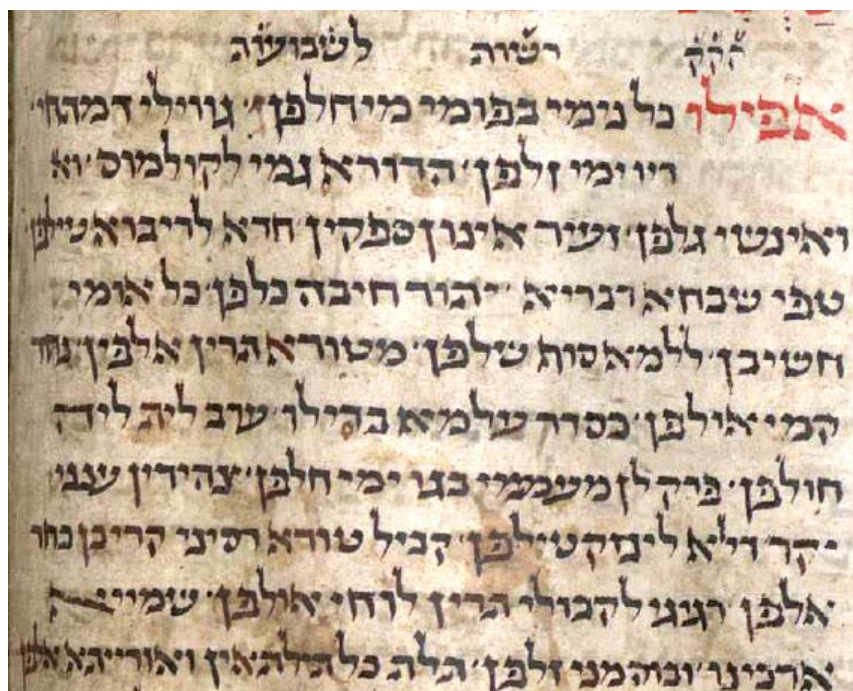 הקק רשות לשבועות
אפילו כל נימי בפומי מיחלפן גווילי דמתחי
דיו ימי זלפן הדורא גמי לקולמוס וא
ואינשי גלפן זעיר אינון ספקין חדא לריבוא
טפי שבחא דבריא יהור חיבה כלפן כל אומי
חשיבן ללמא סות שלפן מטורא תרין אלפין נחת
קמי אולפן כסדר עלמא בדילו ערב לית ליה
חולפן פרק לן מעממי בגו ימי חלפן צהידין ענני
יקר דלא לינזק טילפן קביל טורא דסיני קריבן נחו
אלפן רגיגי לקבולי תרין לוחי אולפן שמייא
ארכינו ובוהמני זלפן תלת כל תילתאין ואורייתא אלפן